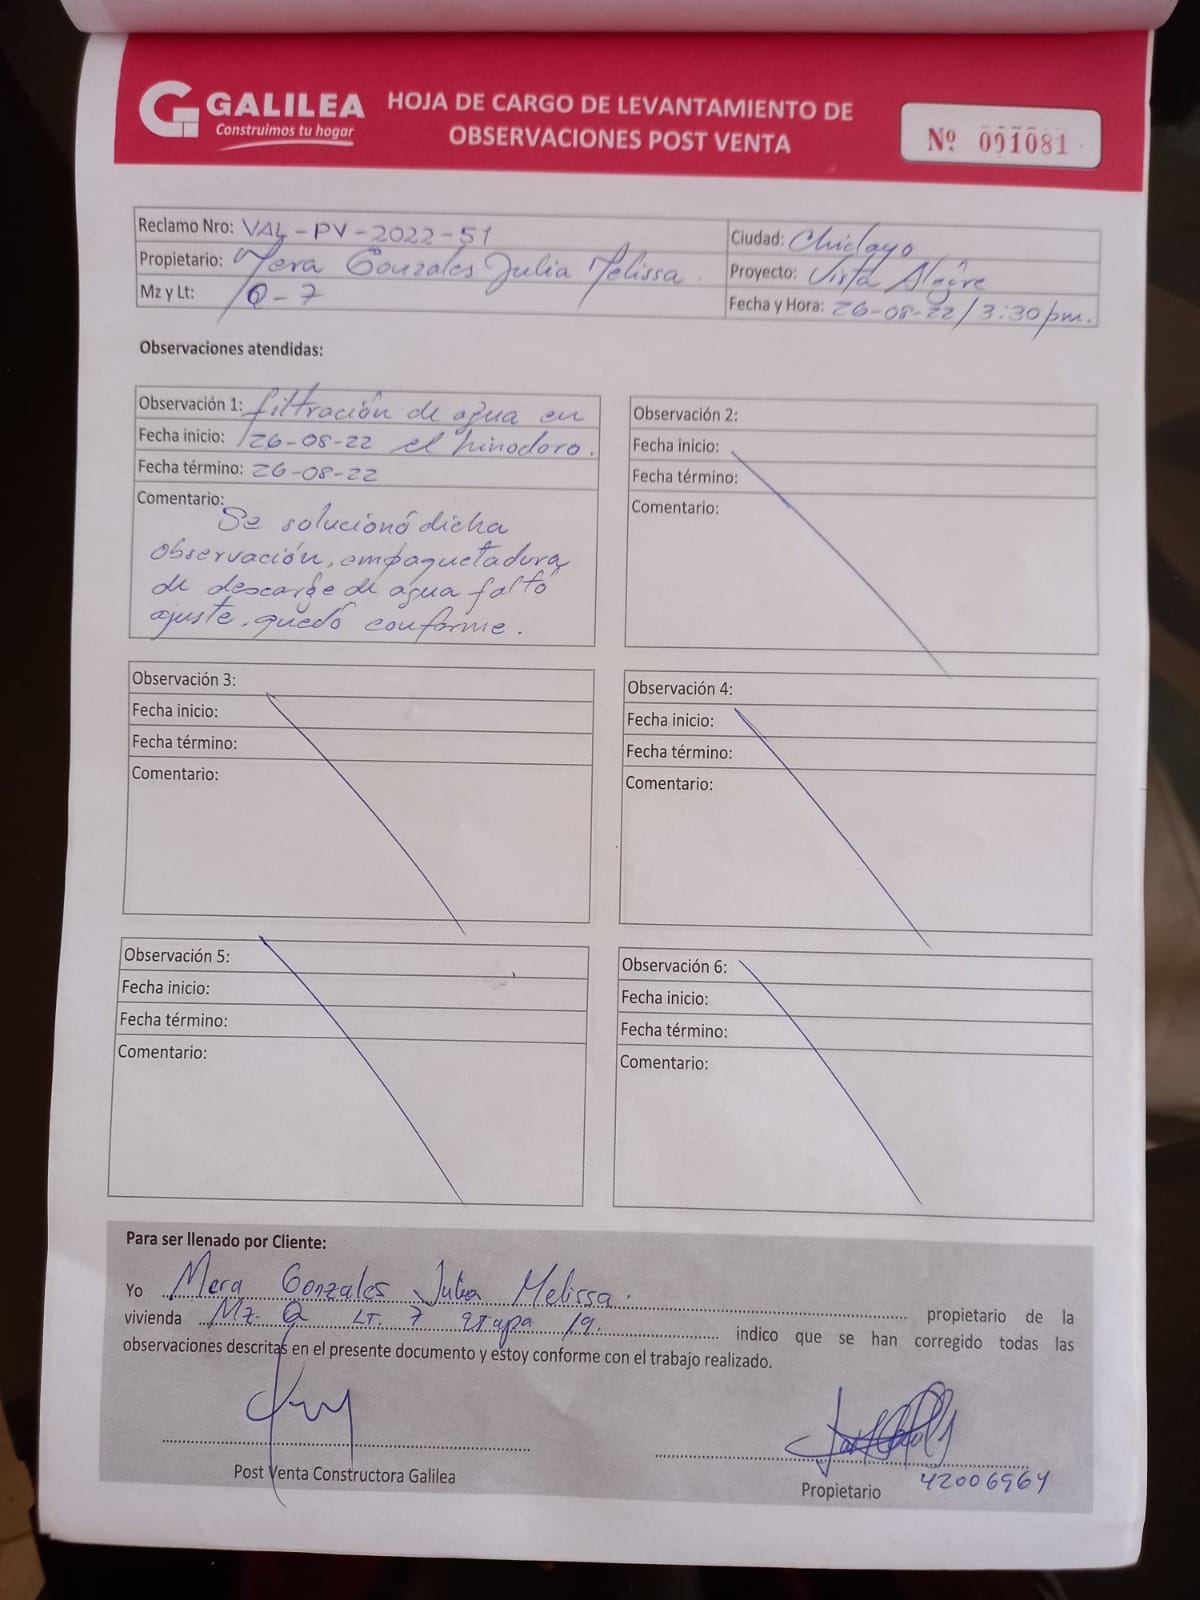 GALILEA
Construimos tu hogar
HOJA DE CARGO DE LEVANTAMIENTO DE
OBSERVACIONES POST VENTA
Nº 091081
Reclamo Nro: VAL-PV-2022-51
Propietario: Mera Gonzales Julia Melissa.
Mz y Lt: Q-7
Ciudad: Chiclayo
Proyecto: Vista Alegre
Fecha y Hora: 26-08-22/3:30pm.
Observaciones atendidas:
Observación 1: filtración de agua en
Fecha inicio: 26-08-22 el hinodoro.
Fecha término: 26-08-22
Comentario:
Se solucionó dicha
observación, empaquetadura
de descarge de agua falto
ajuste, quedó conforme.
Observación 2:
Fecha inicio:
Fecha término:
Comentario:
Observación 3:
Fecha inicio:
Fecha término:
Comentario:
Observación 4:
Fecha inicio:
Fecha término:
Comentario:
Observación 5:
Fecha inicio:
Fecha término:
Comentario:
Observación 6:
Fecha inicio:
Fecha término:
Comentario:
Para ser llenado por Cliente:
Yo Mera Gonzales Julia Melissa. propietario de la
vivienda Mz. Q LT. 7 etapa 19. indico que se han corregido todas las
observaciones descritas en el presente documento y estoy conforme con el trabajo realizado.
Post Venta Constructora Galilea
Propietario 42006964